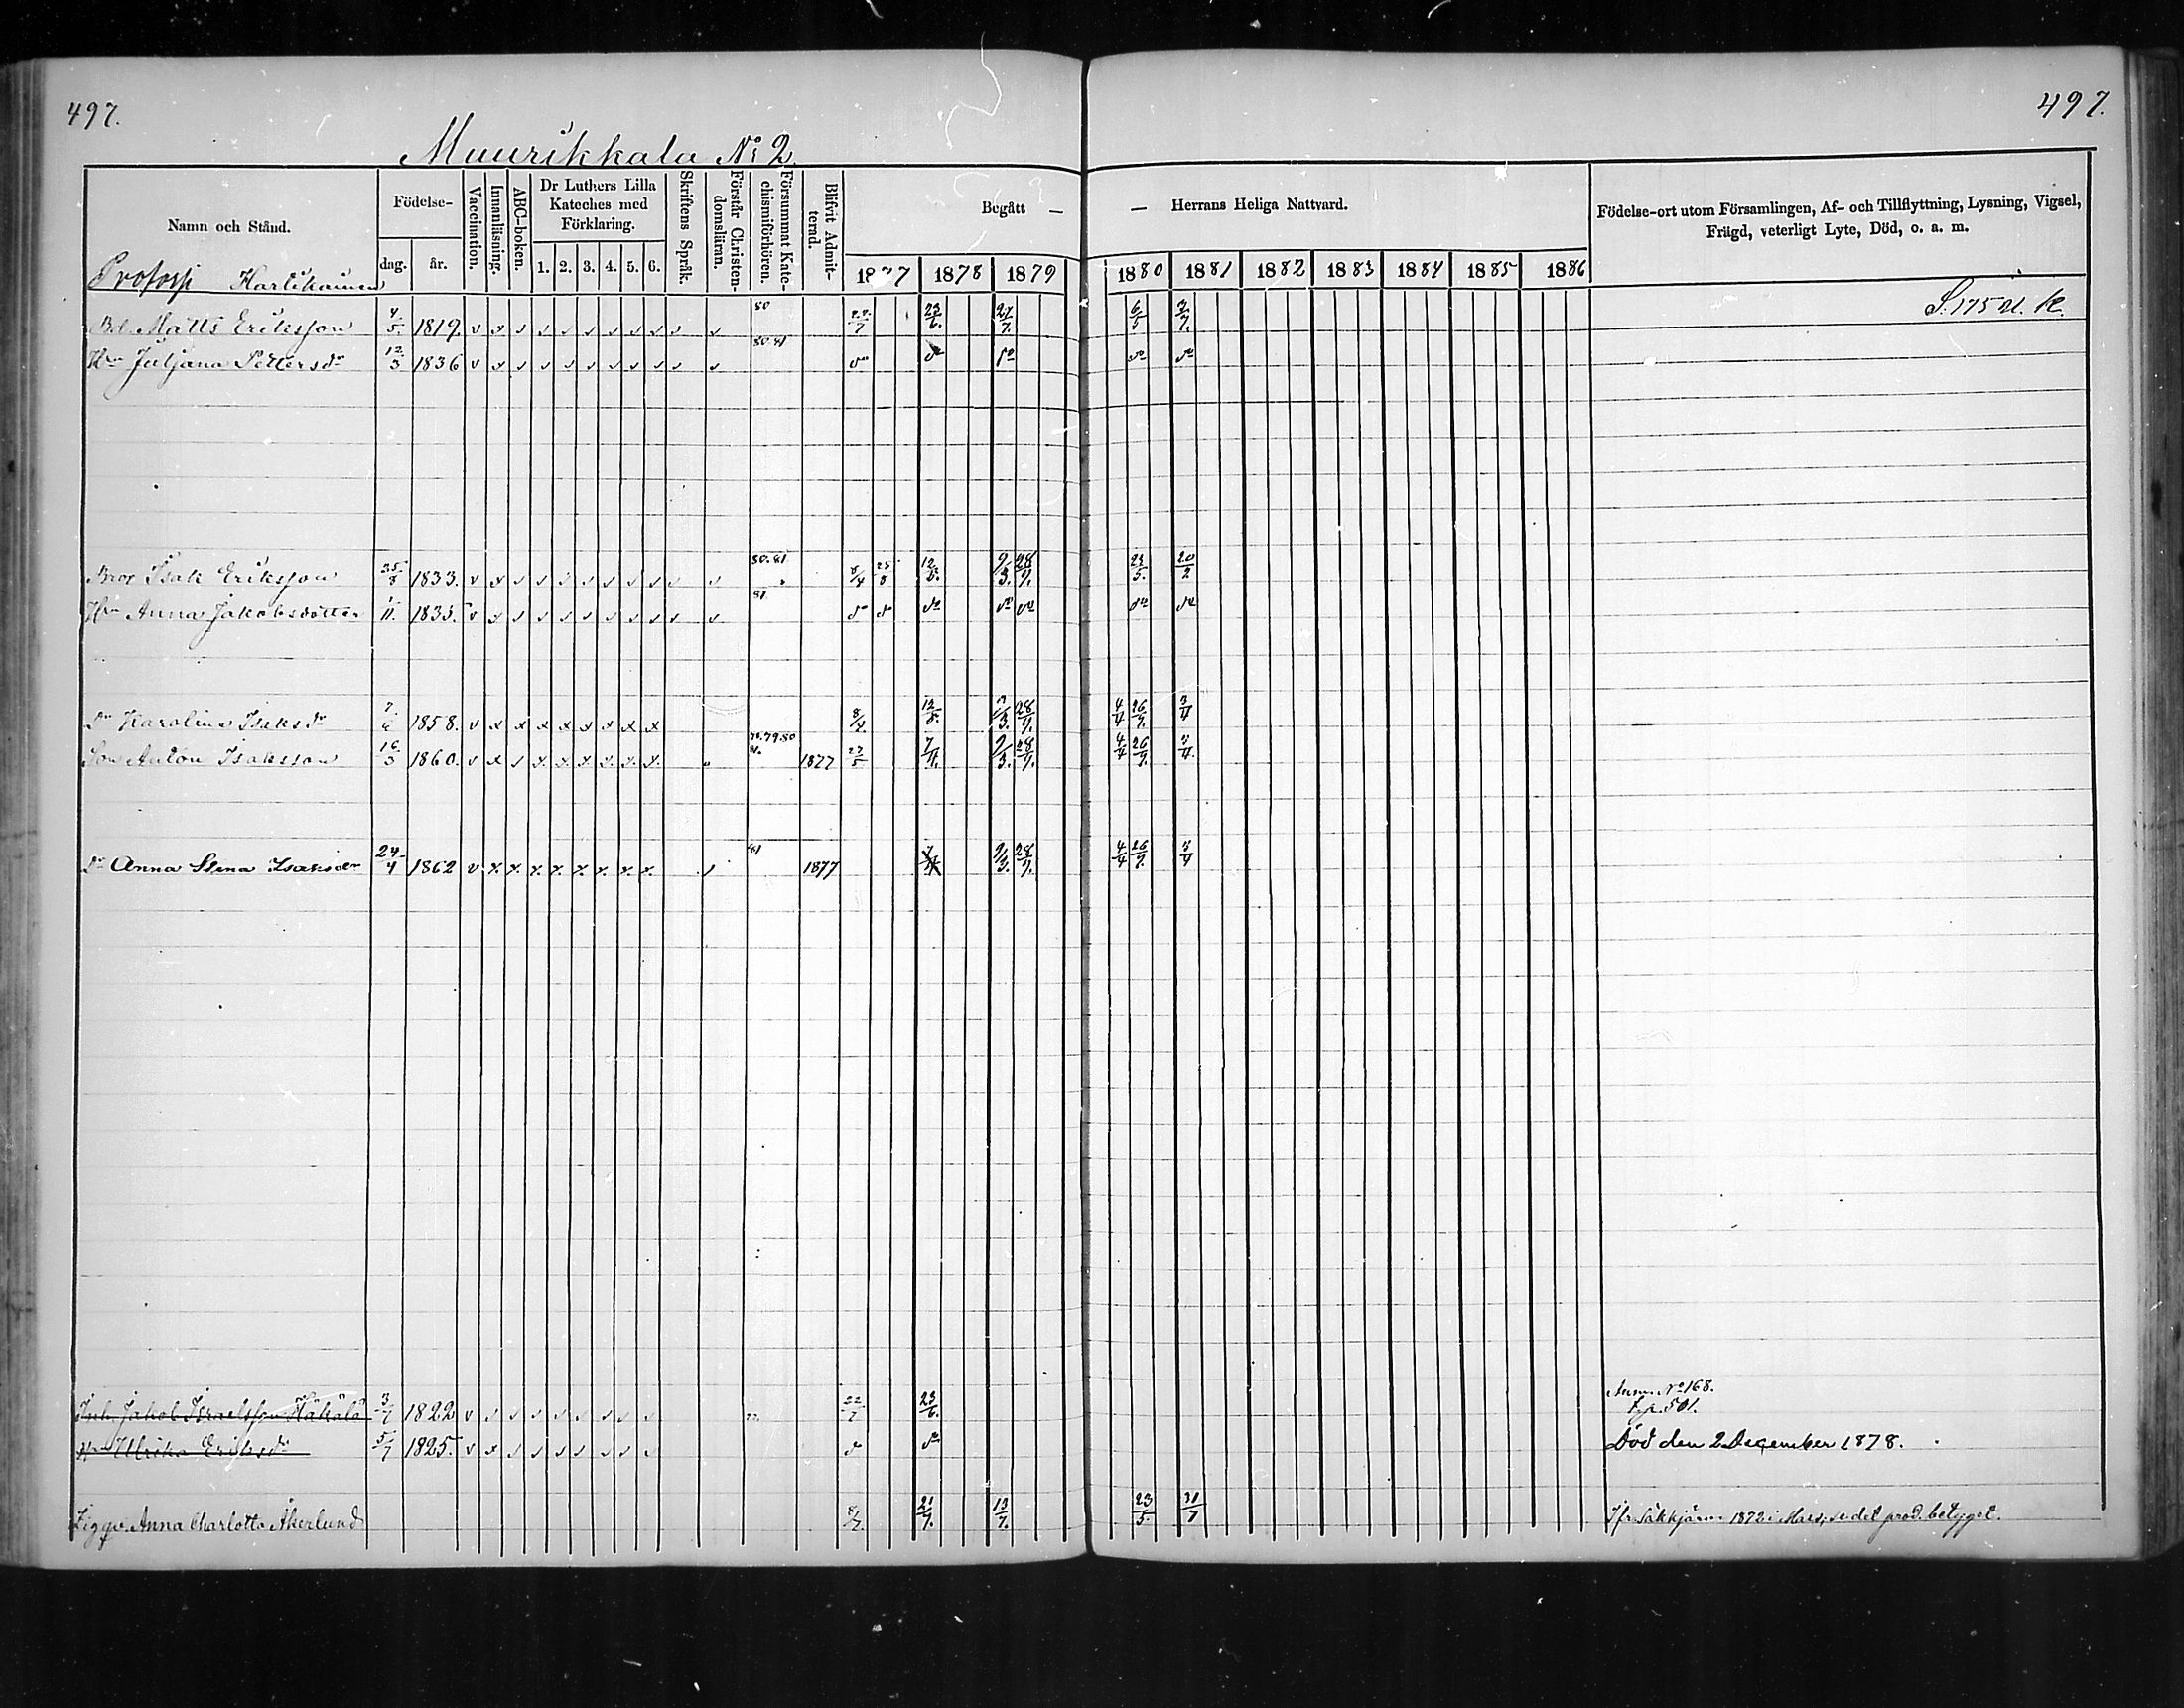 497.
497.
Muurikkala No 2
Namn och Stånd.
Födelse-
dag.
år.
Vaccination.
Innanläsning.
ABC-boken.
Dr Luthers Lilla Kateches med Förklaring.
1. 2. 3. 4. 5. 6.
Skriftens Språk.
Förstår Christen-domsläran.
Försummat Kate-chismiförhören.
Blifvit Admit-terad.
Begått — — Herrans Heliga Nattvard.
1877 1878 1879 1880 1881 1882 1883 1884 1885 1886
Födelse-ort utom Församlingen, Af- och Tillflyttning, Lysning, Vigsel,
Frägd, veterligt Lyte, Död, o. a. m.
Matts Eriksson 4/5 1819. v x 80 23/6. 27/7. 6/5 3/7. S. 175
Hu Juljana Pettersdr 12/3 1836 v x 80.81 do do do do do
Bror Isak Eriksson 25/8 1833. v x 80.81 8/4 12/5. 9/3. 28/9. 23/5. 20/2
Hu Anna Jakobsdotter 11. 1835. v x 81 do do do do do do do
Dr Karolina Isaksdr 7/6 1858. v x x x x x x x x 8/4. 12/5. 9/3. 28/9. 4/4 26/9. 3/4
Son Anton Isaksson 16/5 1860. v x 78.79.80 81. 1877 27/5 7/4. 9/3. 28/9. 4/4 26/9. 3/4.
Dr Anna Stina Isaksdr 24/4 1862 v x. x. x. x. x. x. x. x. 81 1877 9/3. 28/9. 4/4 26/9. 3/4
Inh. Jakob Israelsson Häkälä 3/7 1822 v 77. 22/7 23/6. No 168.
p. 501.
Hu Ulrika Eriksdr 5/7 1825. v x do do Död den 2 December 1878.
Anna Charlotta Åkerlund 8/7. 21/7. 13/7. 23/5. 31/7 Ifr. Säkkjärvi 1872 i Mars, se det prod. betyget.